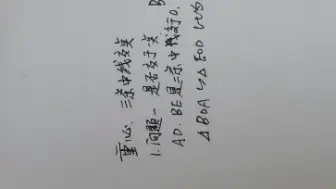 重心：三条中线交点
1.问题一 是否交于一点
AD、BE是二条中线交于O.
△BOA ∽ △EOD